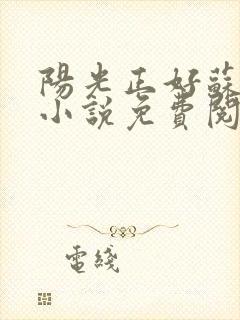 陽光正好蘇
小說免費閱
電綫